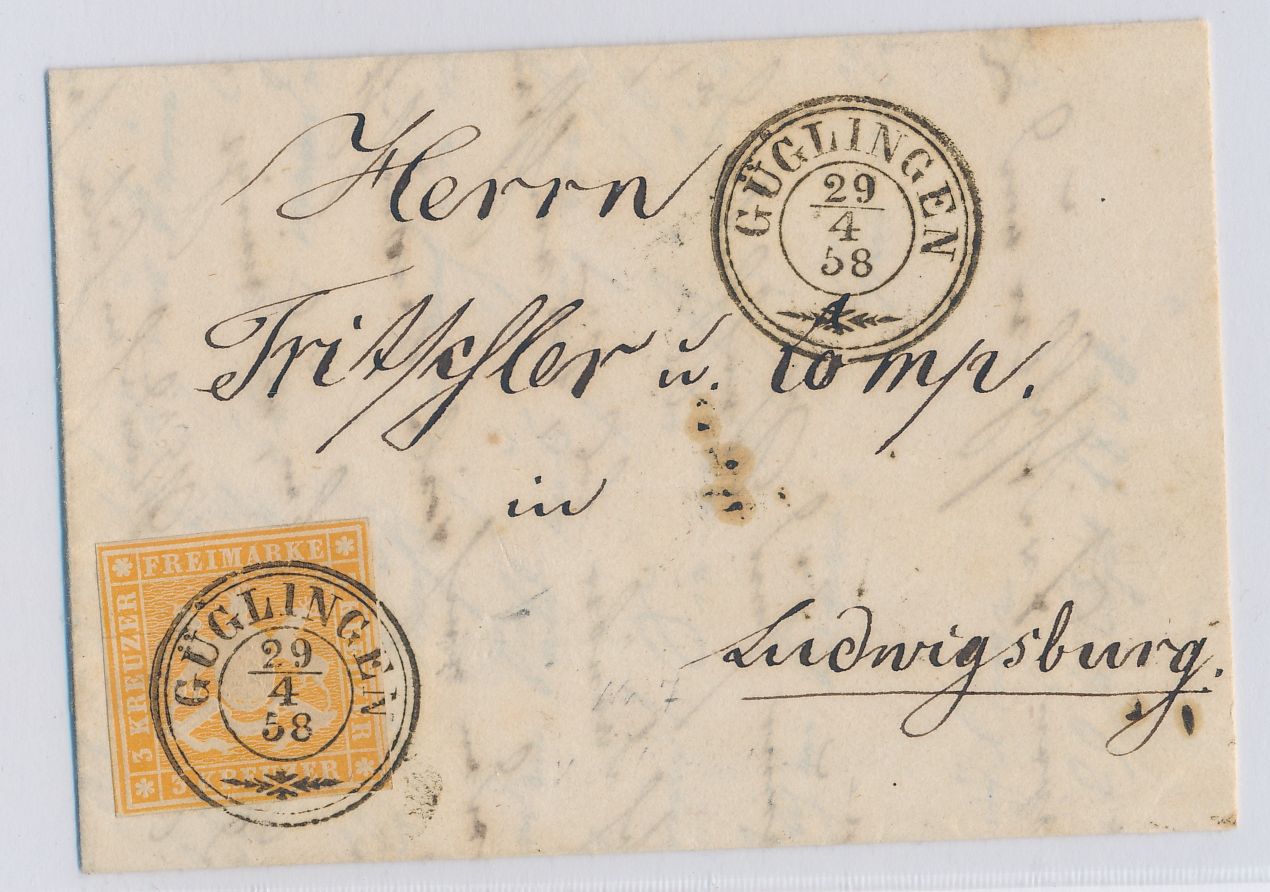 Herrn
GÜGLINGEN
29
4
58
Fritschler u. Comp.
in
Ludwigsburg.
FREIMARKE
3 KREUZER
3 KREUZER
GÜGLINGEN
29
4
58
No 7